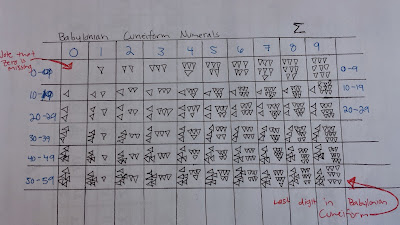 Babylonian Cuneiform Numerals Σ
Note that
zero is
missing
0 1 2 3 4 5 6 7 8 9
0-9 0-9
10-19 10-19
20-29 20-29
30-39
40-49
50-59
Last digit in Babylonian
Cuneiform